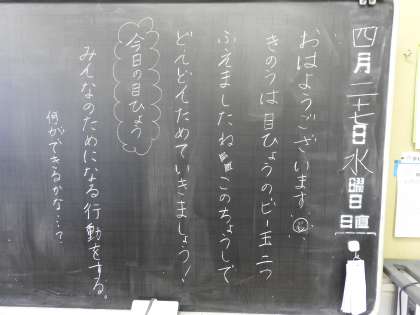 四月二十七日水曜日
日直
おはようございます
きのうは目ひょうのビー玉二つ
ふえましたね このちょうしで
どんどんためていきましょう！
今日の目ひょう
みんなのためになる行動をする。
何ができるかな…？